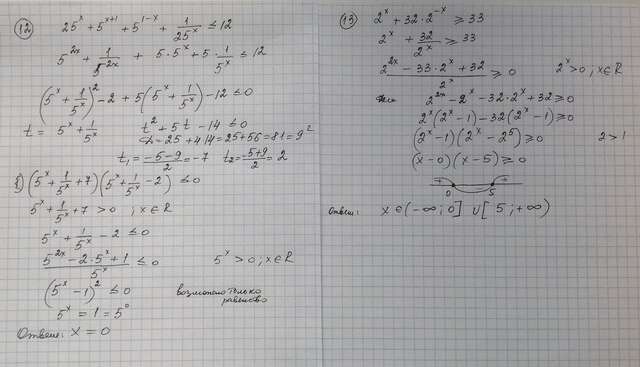 12) 25^x + 5^(x+1) + 5^(1-x) + 1/25^x ≤ 12
5^(2x) + 1/5^(2x) + 5·5^x + 5·1/5^x ≤ 12
(5^x + 1/5^x)^2 - 2 + 5(5^x + 1/5^x) - 12 ≤ 0
t = 5^x + 1/5^x t^2 + 5t - 14 ≤ 0
D = 25 + 4·14 = 25 + 56 = 81 = 9^2
t₁ = (-5-9)/2 = -7 t₂ = (-5+9)/2 = 2
1) (5^x + 1/5^x + 7)(5^x + 1/5^x - 2) ≤ 0
5^x + 1/5^x + 7 > 0 ; x∈R
5^x + 1/5^x - 2 ≤ 0
(5^(2x) - 2·5^x + 1)/5^x ≤ 0 5^x > 0 ; x∈R
(5^x - 1)^2 ≤ 0 возможно только
равенство
5^x = 1 = 5^0
Ответ: x = 0
13) 2^x + 32·2^(-x) ≥ 33
2^x + 32/2^x ≥ 33
(2^(2x) - 33·2^x + 32)/2^x ≥ 0 2^x > 0 ; x∈R
2^(2x) - 2^x - 32·2^x + 32 ≥ 0
2^x(2^x - 1) - 32(2^x - 1) ≥ 0
(2^x - 1)(2^x - 2^5) ≥ 0 2 > 1
(x - 0)(x - 5) ≥ 0
+ - +
0 5
Ответ: x ∈ (-∞; 0] ∪ [5; +∞)